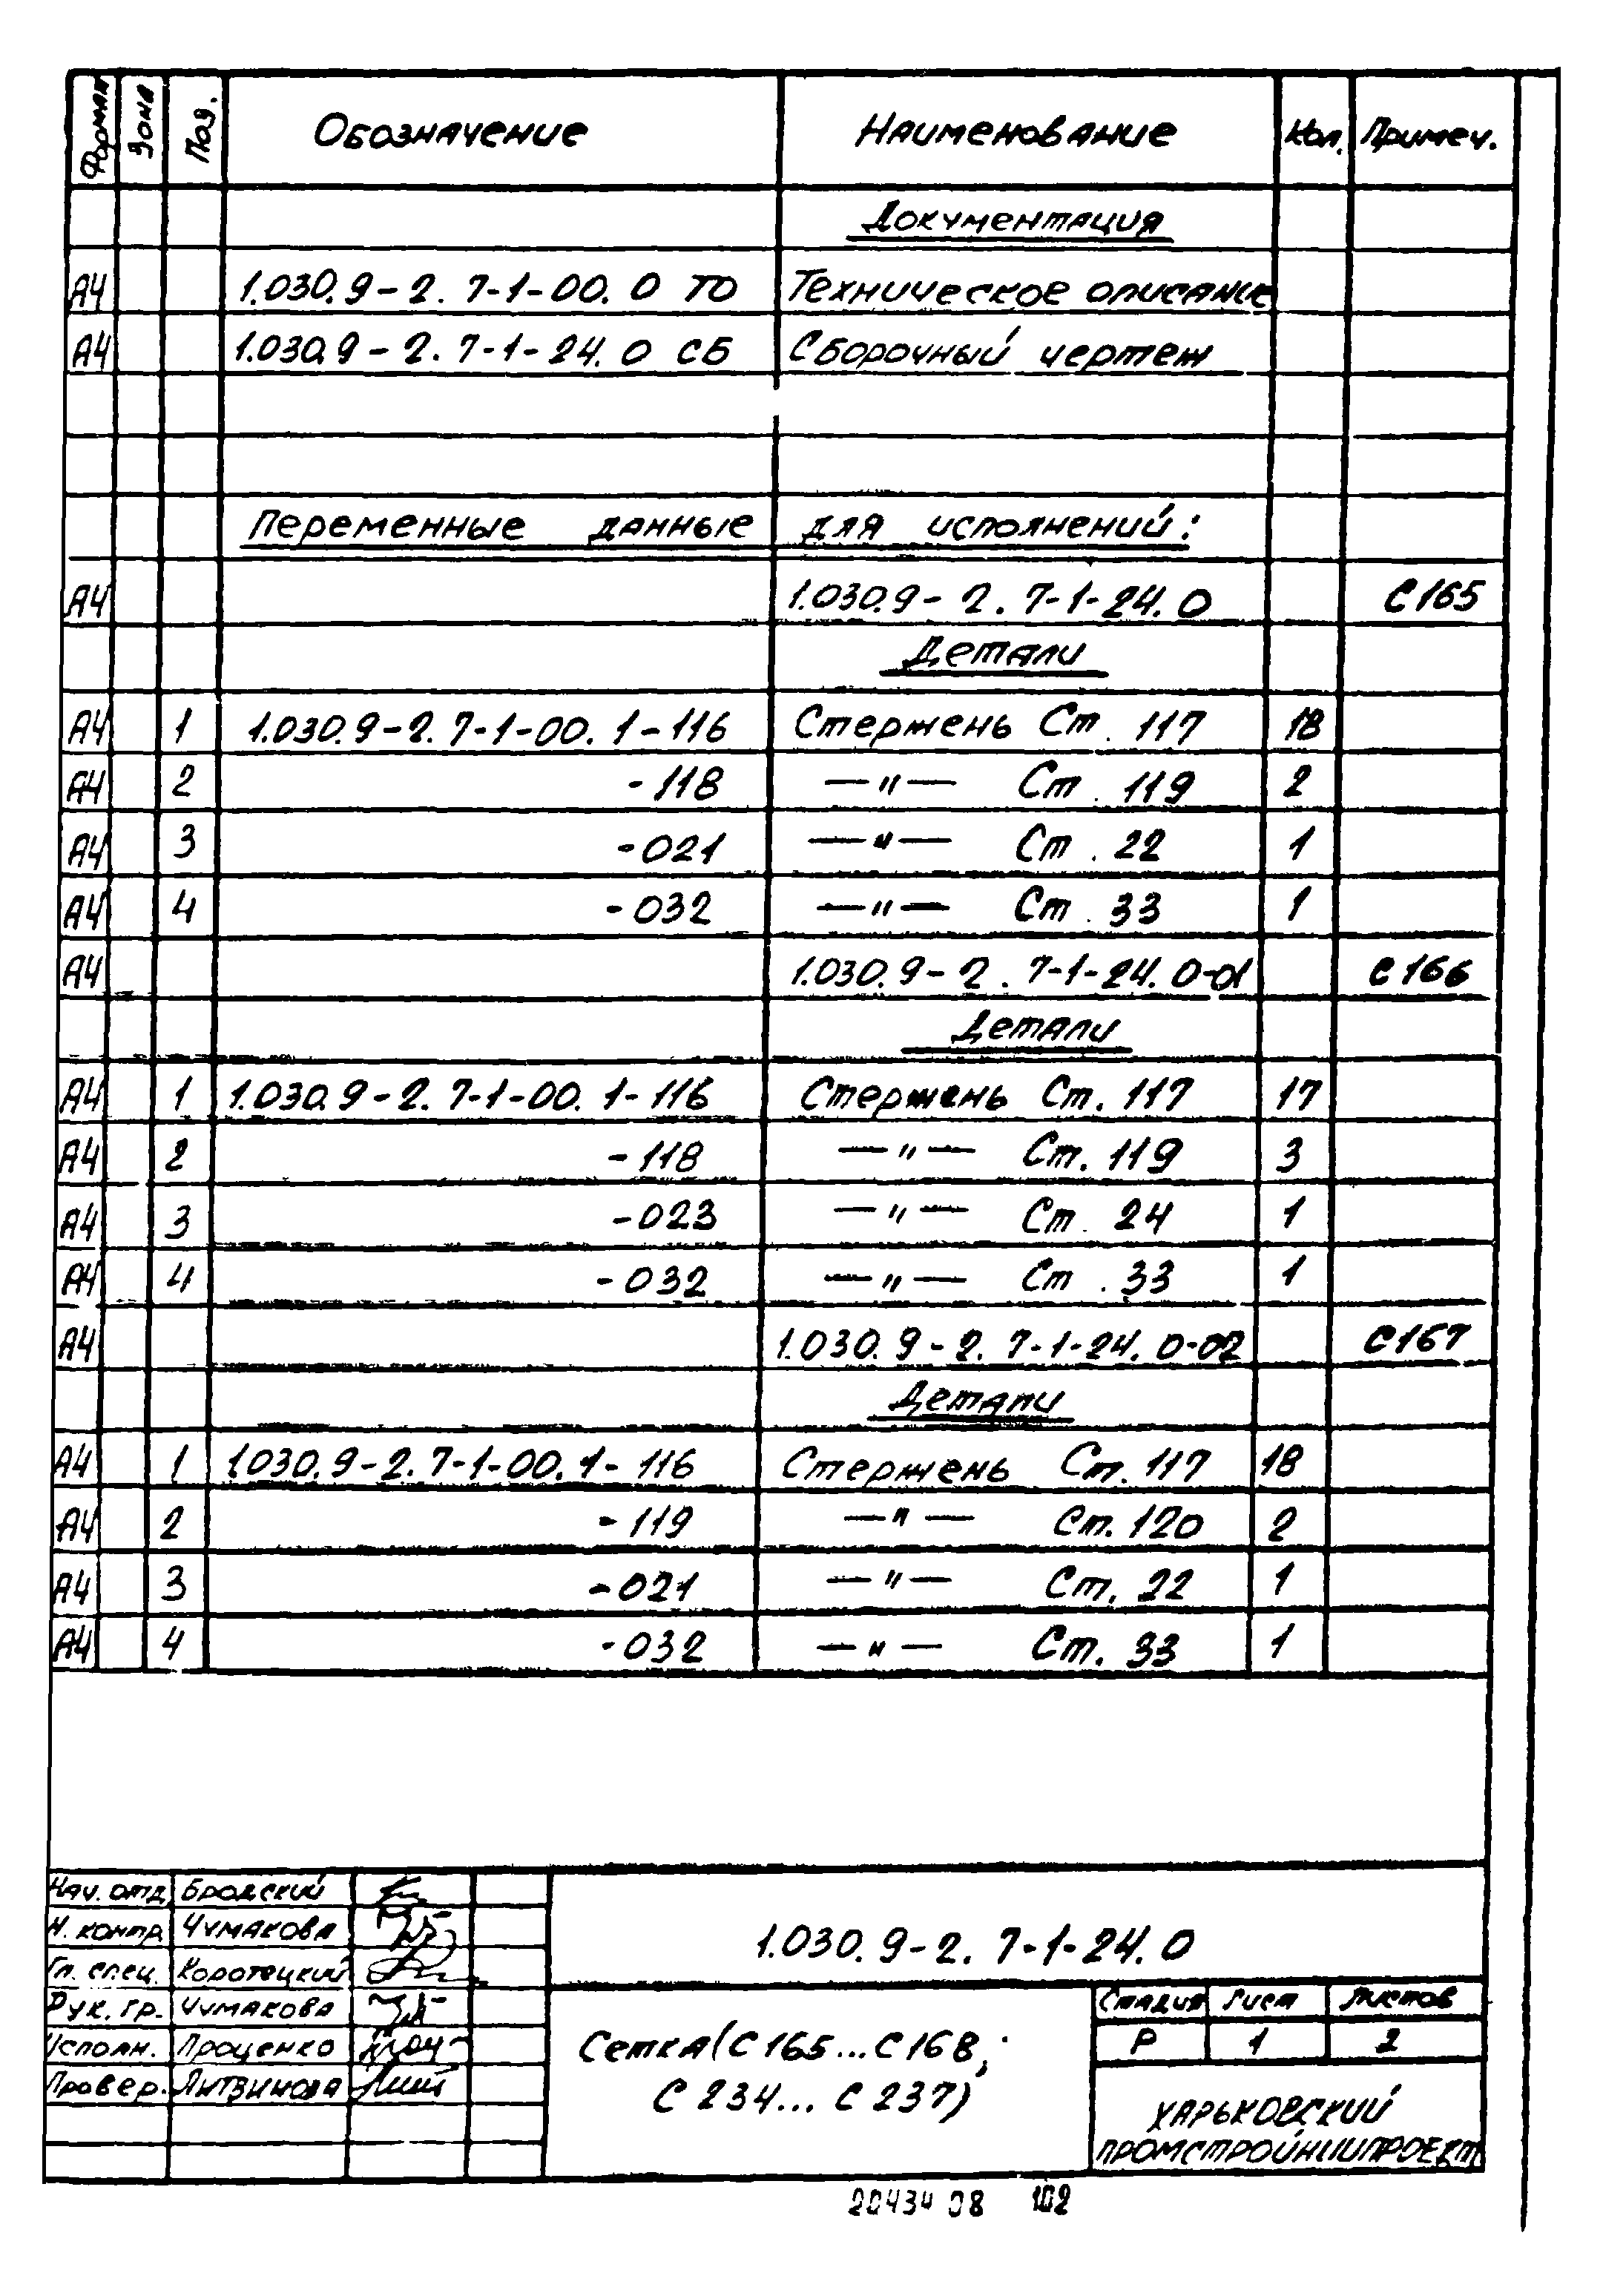 Формат Зона Поз. Обозначение Наименование Кол. Примеч.
Документация
А4 1.030.9-2. 7-1-00. 0 ТО Техническое описание
А4 1.030.9-2. 7-1-24. 0 СБ Сборочный чертеж
Переменные данные для исполнений:
А4 1.030.9-2. 7-1-24. 0 С165
Детали
А4 1 1.030.9-2. 7-1-00. 1-116 Стержень Ст. 117 18
А4 2 -118 —"— Ст. 119 2
А4 3 -021 —"— Ст. 22 1
А4 4 -032 —"— Ст. 33 1
А4 1.030.9-2. 7-1-24. 0-01 С166
Детали
А4 1 1.030.9-2. 7-1-00. 1-116 Стержень Ст. 117 17
А4 2 -118 —"— Ст. 119 3
А4 3 -023 —"— Ст. 24 1
А4 4 -032 —"— Ст. 33 1
А4 1.030.9-2. 7-1-24. 0-02 С167
Детали
А4 1 1.030.9-2. 7-1-00. 1-116 Стержень Ст. 117 18
А4 2 -119 —"— Ст. 120 2
А4 3 -021 —"— Ст. 22 1
А4 4 -032 —"— Ст. 33 1
Нач. отд. Бродский
Н. контр. Чумакова
Гл. спец. Коротецкий
Рук. гр. Чумакова
Исполн. Проценко
Провер. Литвинова
1.030.9-2. 7-1-24. 0
Сетка (С165...С168;
С234...С237)
Стадия Лист Листов
Р 1 2
Харьковский
Промстройниипроект
20434 08 102